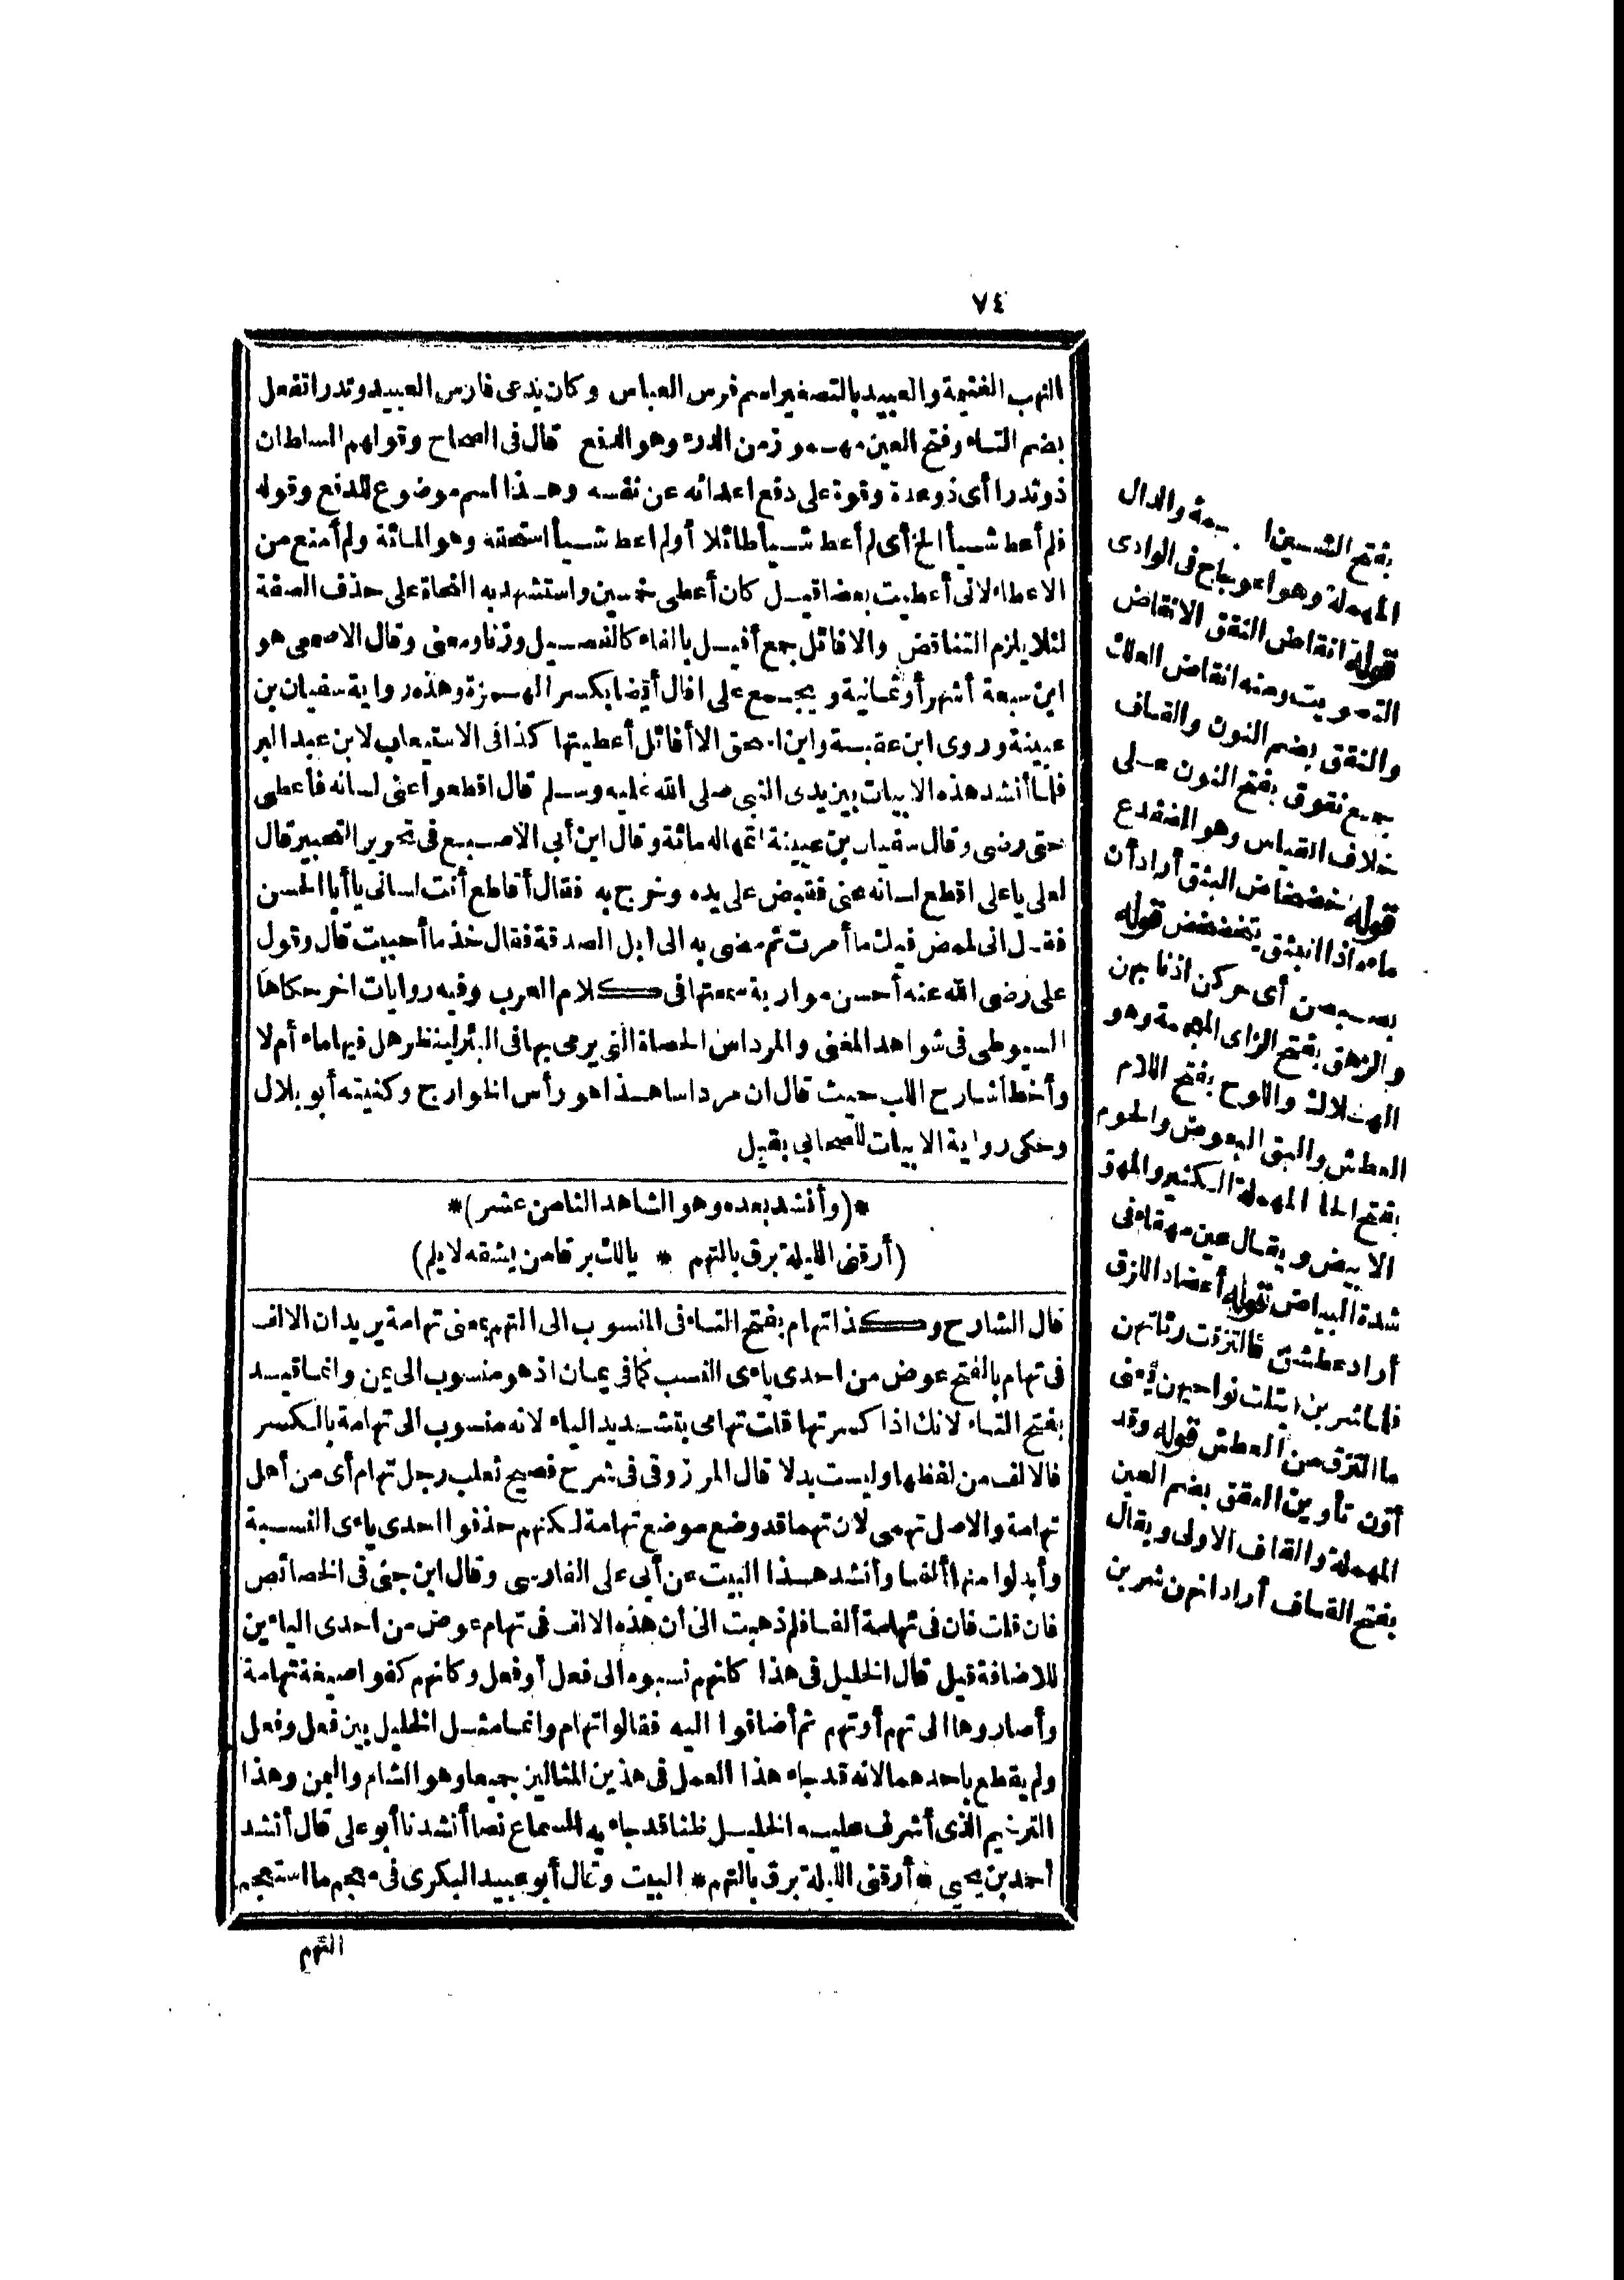 ٧٤
النهب الغنيمة والعبيد بالتصغير اسم فرس العباس وكان يدعى فارس العبيد وتدرأ تفعل
بضم التاء وفتح العين مهموز من الدرء وهو الدفع قال فى الصحاح وقولهم السلطان
ذو تدرا أى ذو عدة وقوة على دفع اعدائه عن نفسه وهذا اسم موضوع للدفع وقوله
فلم أعط شيأ الخ أى لم أعط شيأ طائلا أو لم اعط شيأ استحقه وهو المائة ولم أمنع من
الاعطاء لانى أعطيت بعضا قيل كان أعطى خمسين واستشهد به النحاة على حذف الصفة
لئلا يلزم التناقض والافائل جمع أفيل بالفاء كالفصيل وزنا ومعنى وقال الاصمعى هو
ابن سبعة أشهر أو ثمانية ويجمع على افال أيضا بكسر الهمزة وهذه رواية سفيان بن
عيينة وروى ابن عقبسة وابن اسحق الا أفائل أعطيتها كذا فى الاستيعاب لابن عبد البر
فلما أنشد هذه الابيات بين يدى النبى صلى الله عليه وسلم قال اقطعوا عنى لسانه فأعطى
حتى رضى وقال سفيان بن عيينة اتمها له مائة وقال ابن أبى الاصبع فى تحرير التحبير قال
لعلى ياعلى اقطع لسانه عنى فقبض على يده وخرج به فقال أقاطع أنت لسانى يا أبا الحسن
فقال انى لممض فيك ما أمرت ثم مضى به الى ابل الصدقة فقال خذ ما أحببت قال وقول
على رضى الله عنه أحسن مواربة سمعتها فى كلام العرب وفيه روايات اخر حكاها
السيوطى فى شواهد المغنى والمرداس الحصاة التى يرمى بها فى البئر لينظر هل فيها ماء أم لا
وأخطأ شارح اللب حيث قال ان مرداسا هذا هو رأس الخوارج وكنيته أبو بلال
وحكى رواية الابيات للصحابى بقيل
*(وأنشد بعده وهو الشاهد الثامن عشر)*
(أرقنى الليلة برق بالتهم * يالك برقا من يشقه لا يلم)
قال الشارح وكذا تهام بفتح التاء فى المنسوب الى التهم بمعنى تهامة يريد ان الالف
فى تهام بالفتح عوض من احدى ياءى النسب كما فى يمان اذ هو منسوب الى يمن وانما قيد
بفتح التاء لانك اذا كسرتها قلت تهامى بتشديد الياء لانه منسوب الى تهامة بالكسر
فالالف من لفظها وليست بدلا قال المرزوقى فى شرح فصيح ثعلب رجل تهام أى من أهل
تهامة والاصل تهمى لان تهما قد وضع موضع تهامة لكنهم حذفوا احدى ياءى النسبة
وأبدلوا منها ألفا وأنشد هذا البيت عن أبى على الفارسى وقال ابن جنى فى الخصائص
فان قلت فان فى تهامة ألفا فلم ذهبت الى أن هذه الالف فى تهام عوض من احدى الياءين
للاضافة قيل قال الخليل فى هذا كانهم نسبوه الى فعل أو فعل وكانهم كفوا صيغة تهامة
وأصاروها الى تهم أو تهم ثم أضافوا اليه فقالوا تهام وانما مثل الخليل بين فعل وفعل
ولم يقطع باحدهما لانه قد جاء هذا العمل فى هذين المثالين جميعا وهو الشام واليمن وهذا
الترخيم الذى أشرف عليه الخليل ظنا قد جاء به السماع نصا أنشدنا أبو على قال أنشد
احمد بن يحيى * أرقنى الليلة برق بالتهم * البيت وقال أبو عبيد البكرى فى معجم ما استعجم
التهم
بفتح الشين والدال
المهملة وهو اعوجاج فى الوادى
قوله انقاض النقق الانقاض
التصويت ومنه انقاض العلك
والنقق بضم النون والقاف
جمع نقوق بفتح النون على
خلاف القياس وهو الضفدع
قوله خضخاض البثق أراد أن
ماءه اذا انبثق يخضخض قوله
بصبصن أى حركن اذنابهن
والزهق بفتح الزاى المعجمة وهو
الهلاك واللوح بفتح اللام
العطش والبق البعوض والحوم
بفتح الحا المهملة الكثير والمهق
الابيض ويقال عين مهقاء فى
شدة البياض قوله أعضاد اللزق
أراد عطشن فالتزقت رئاتهن
فلما شربن ابتلت نواحيهن يعنى
ما التزق من العطش قوله وقد
أون تأوين العقق بضم العين
المهملة والقاف الاولى ويقال
بفتح القاف أراد انهن شربن